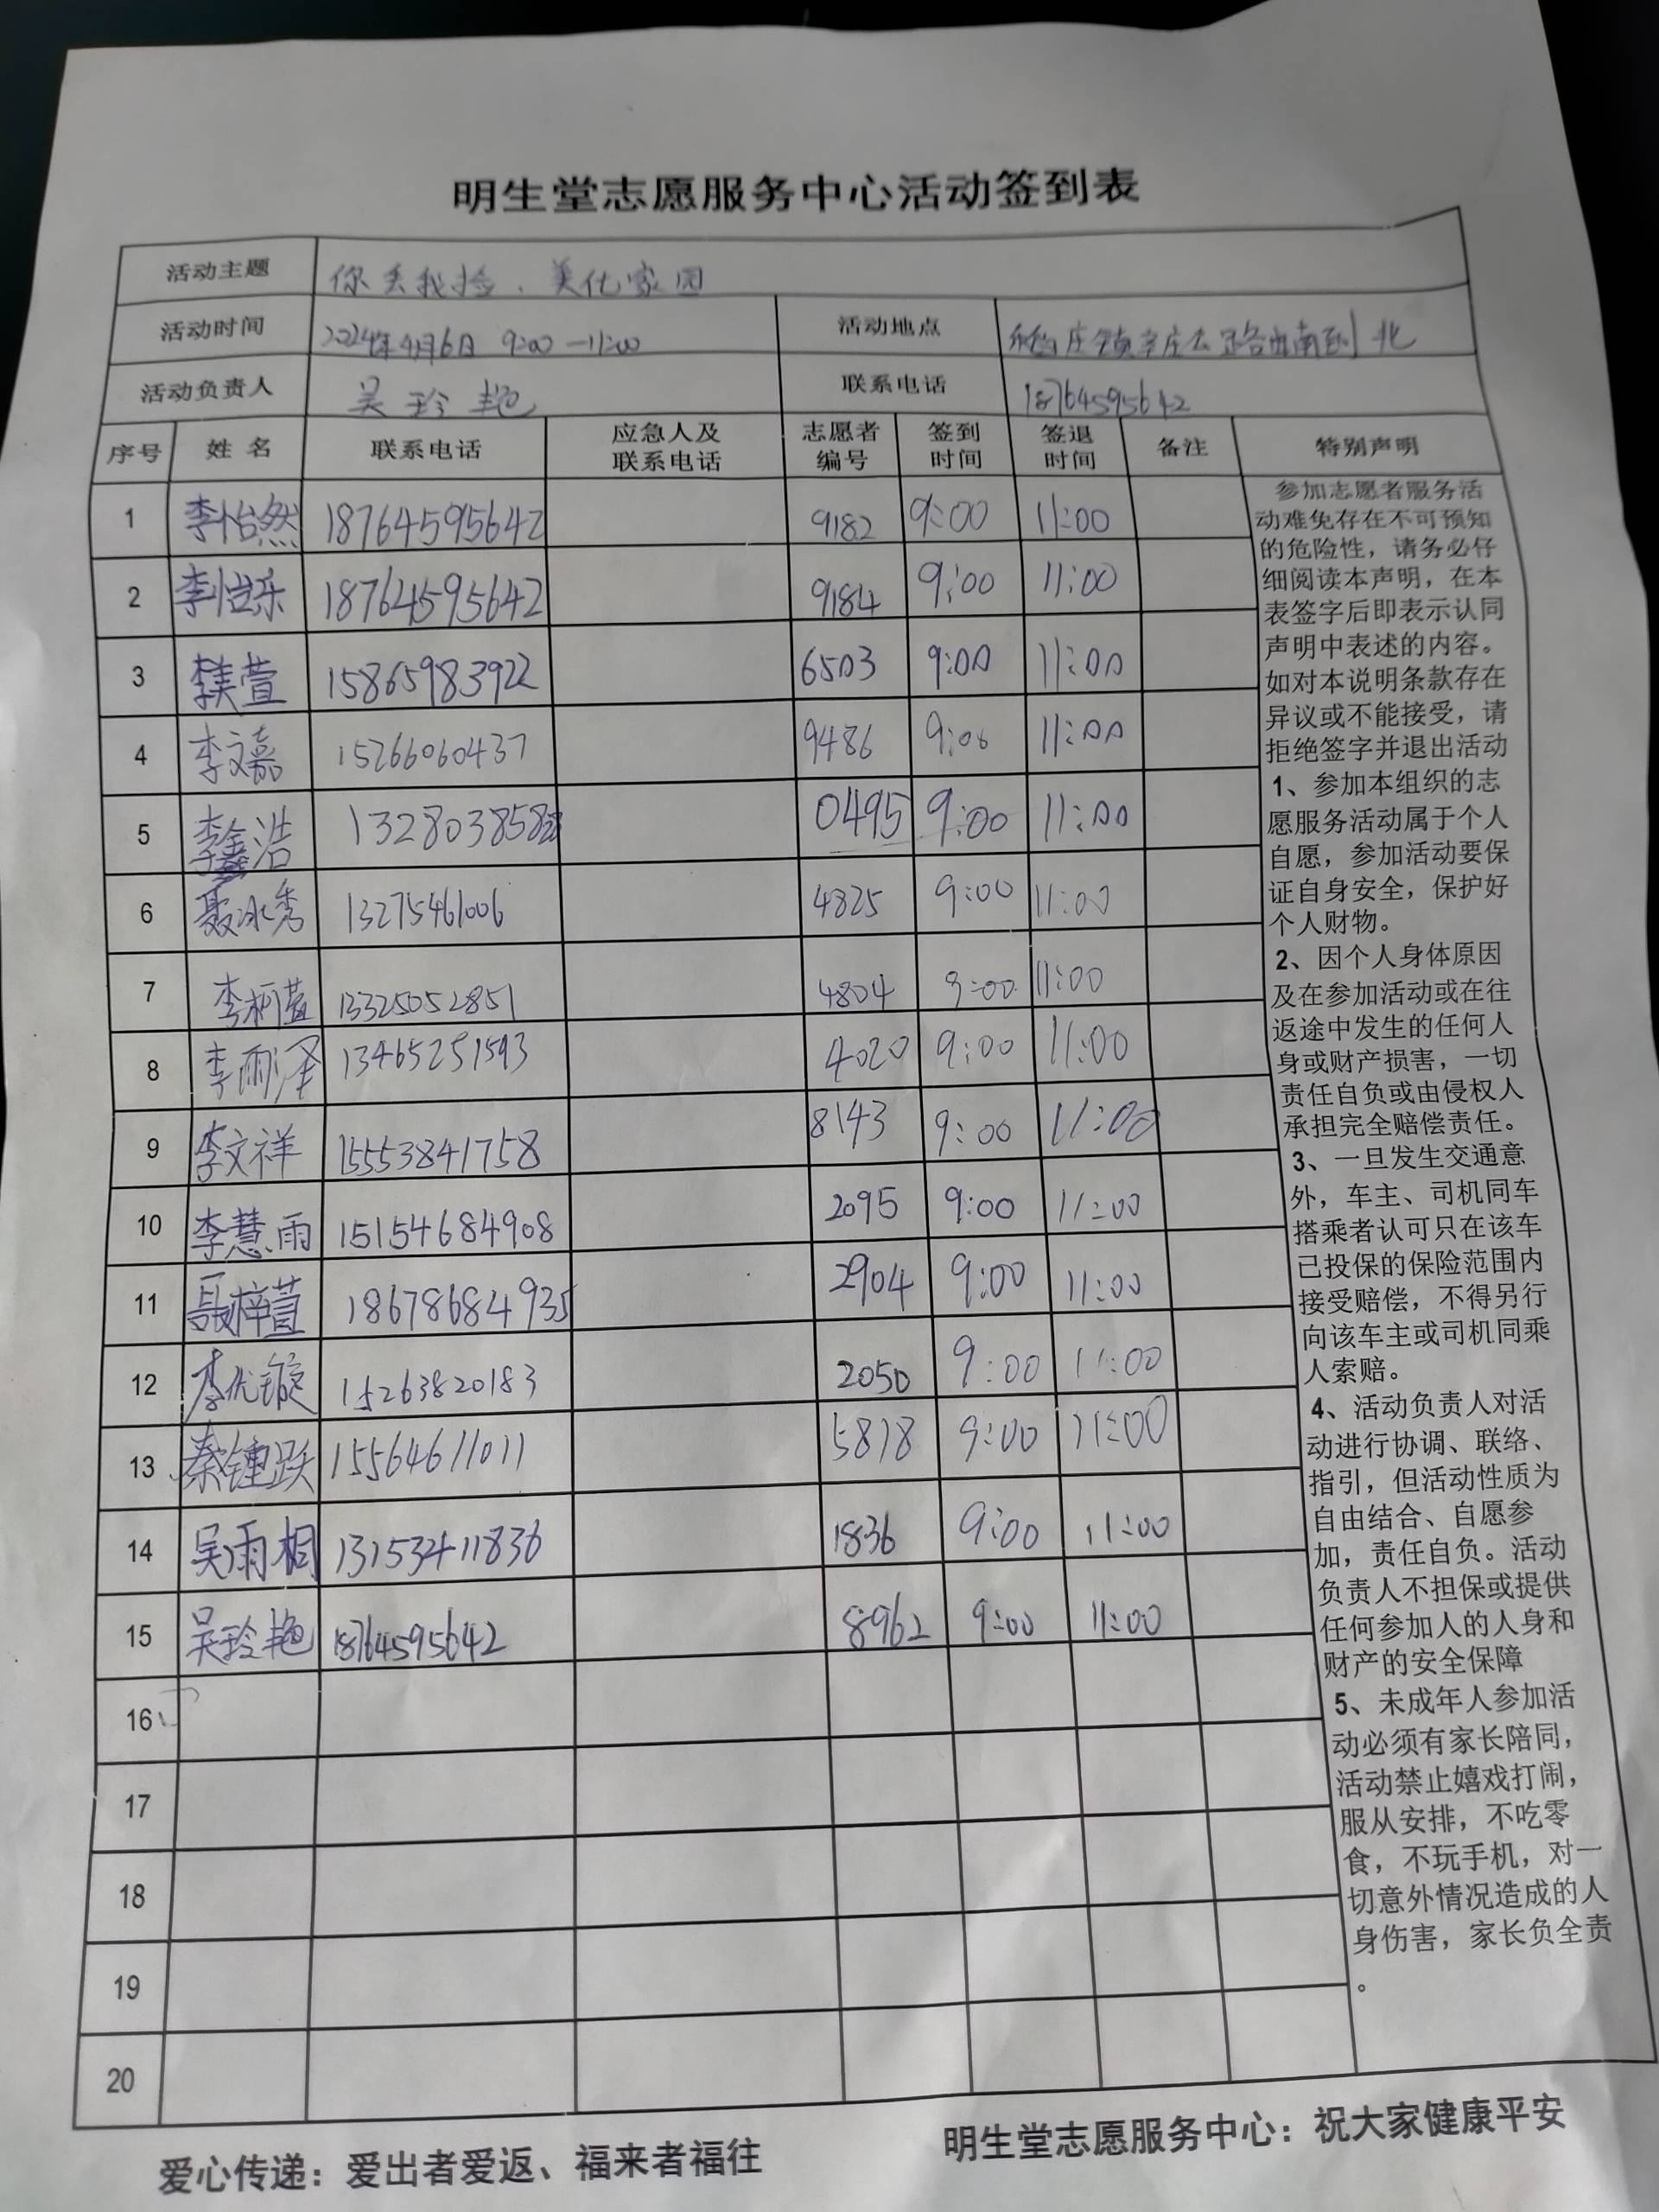 明生堂志愿服务中心活动签到表
活动主题 你丢我捡、美化家园
活动时间 2024年4月6日 9:00—11:00 活动地点 庄镇辛庄公路由南到北
活动负责人 吴玲艳 联系电话 18764595642
序号 姓名 联系电话 应急人及联系电话 志愿者编号 签到时间 签退时间 备注 特别声明
1 李怡然 18764595642 9182 9:00 11:00
2 李怡乐 18764595642 9184 9:00 11:00
3 李美萱 15865983922 6503 9:00 11:00
4 李文嘉 15266060437 9486 9:00 11:00
5 李鑫浩 0495 9:00 11:00
6 聂冰秀 13275461006 4825 9:00 11:00
7 李柯萱 13325052851 4804 9:00 11:00
8 李雨泽 13465251593 4020 9:00 11:00
9 李文祥 15553841758 8143 9:00 11:00
10 李慧雨 15154684908 2095 9:00 11:00
11 聂梓萱 18678684935 2904 9:00 11:00
12 李优镟 15263820183 2050 9:00 11:00
13 秦锺跃 15564611011 5818 9:00 11:00
14 吴雨桐 13153411836 1836 9:00 11:00
15 吴玲艳 18764595642 8962 9:00 11:00
16
17
18
19
20
参加志愿者服务活
动难免存在不可预知
的危险性，请务必仔
细阅读本声明，在本
表签字后即表示认同
声明中表述的内容。
如对本说明条款存在
异议或不能接受，请
拒绝签字并退出活动
1、参加本组织的志
愿服务活动属于个人
自愿，参加活动要保
证自身安全，保护好
个人财物。
2、因个人身体原因
及在参加活动或在往
返途中发生的任何人
身或财产损害，一切
责任自负或由侵权人
承担完全赔偿责任。
3、一旦发生交通意
外，车主、司机同车
搭乘者认可只在该车
已投保的保险范围内
接受赔偿，不得另行
向该车主或司机同乘
人索赔。
4、活动负责人对活
动进行协调、联络、
指引，但活动性质为
自由结合、自愿参
加，责任自负。活动
负责人不担保或提供
任何参加人的人身和
财产的安全保障
5、未成年人参加活
动必须有家长陪同，
活动禁止嬉戏打闹，
服从安排，不吃零
食，不玩手机，对一
切意外情况造成的人
身伤害，家长负全责
。
爱心传递：爱出者爱返、福来者福往 明生堂志愿服务中心：祝大家健康平安